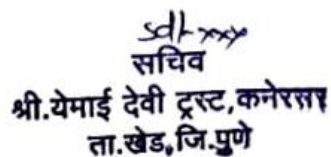 sd/-xxx
सचिव
श्री.येमाई देवी ट्रस्ट,कनेरसर
ता.खेड,जि.पुणे